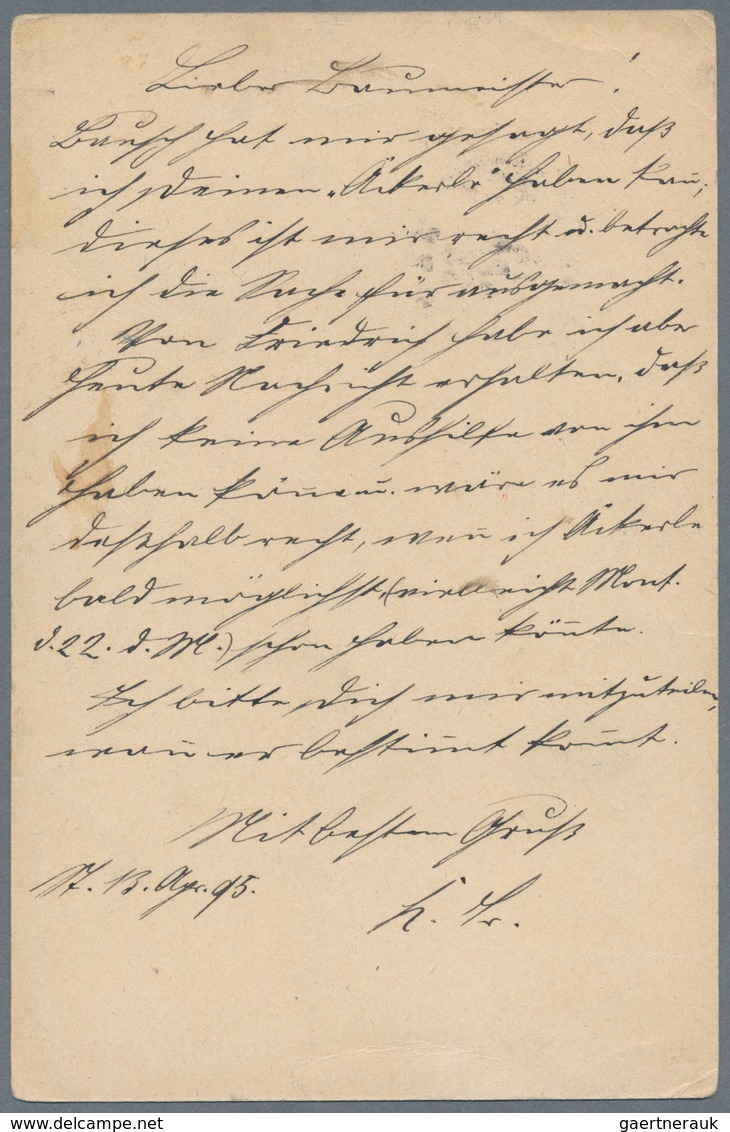 Lieber Baumeister!
Bausch hat mir gesagt, daß
ich Deinen „Ackerle" haben kann;
dieses ist mir recht u. betrachte
ich die Sache für ausgemacht.
Von Friedrich habe ich aber
heute Nachricht erhalten, daß
ich keine Aushilfe von ihm
haben könne u. wäre es mir
deßhalb recht, wenn ich Ackerle
bald möglichst, (vielleicht Mont.
d. 22. d. M.) schon haben könnte.
Ich bitte Dich mir mitzuteilen,
wann er bestimmt kommt.
Mit bestem Gruß
St. 13. Apr. 95.
gaertnerauk